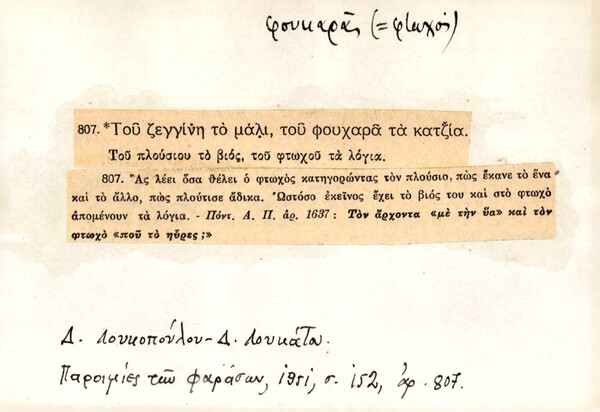 φουκαρᾶς (=φτωχός)
807. *Τοῦ ζεγγίνη τὸ μάλι, τοῦ φουχαρᾶ τὰ κατζία.
Τοῦ πλούσιου τὸ βιός, τοῦ φτωχοῦ τὰ λόγια.
807. Ἂς λέει ὅσα θέλει ὁ φτωχὸς κατηγορώντας τὸν πλούσιο, πὼς ἔκανε τὸ ἕνα
καὶ τὸ ἄλλο, πὼς πλούτισε ἄδικα. Ὡστόσο ἐκεῖνος ἔχει τὸ βιός του καὶ στὸ φτωχὸ
ἀπομένουν τὰ λόγια. - Πόντ. Α. Π. ἀρ. 1637: Τὸν ἄρχοντα «μὲ τὴν ὕα» καὶ τὸν
φτωχὸ «ποῦ τὸ ηὗρες;»
Δ. Λουκοπούλου - Δ. Λουκάτου.
Παροιμίες τῶν Φαράσων, 1951, σ. 152, ἀρ. 807.